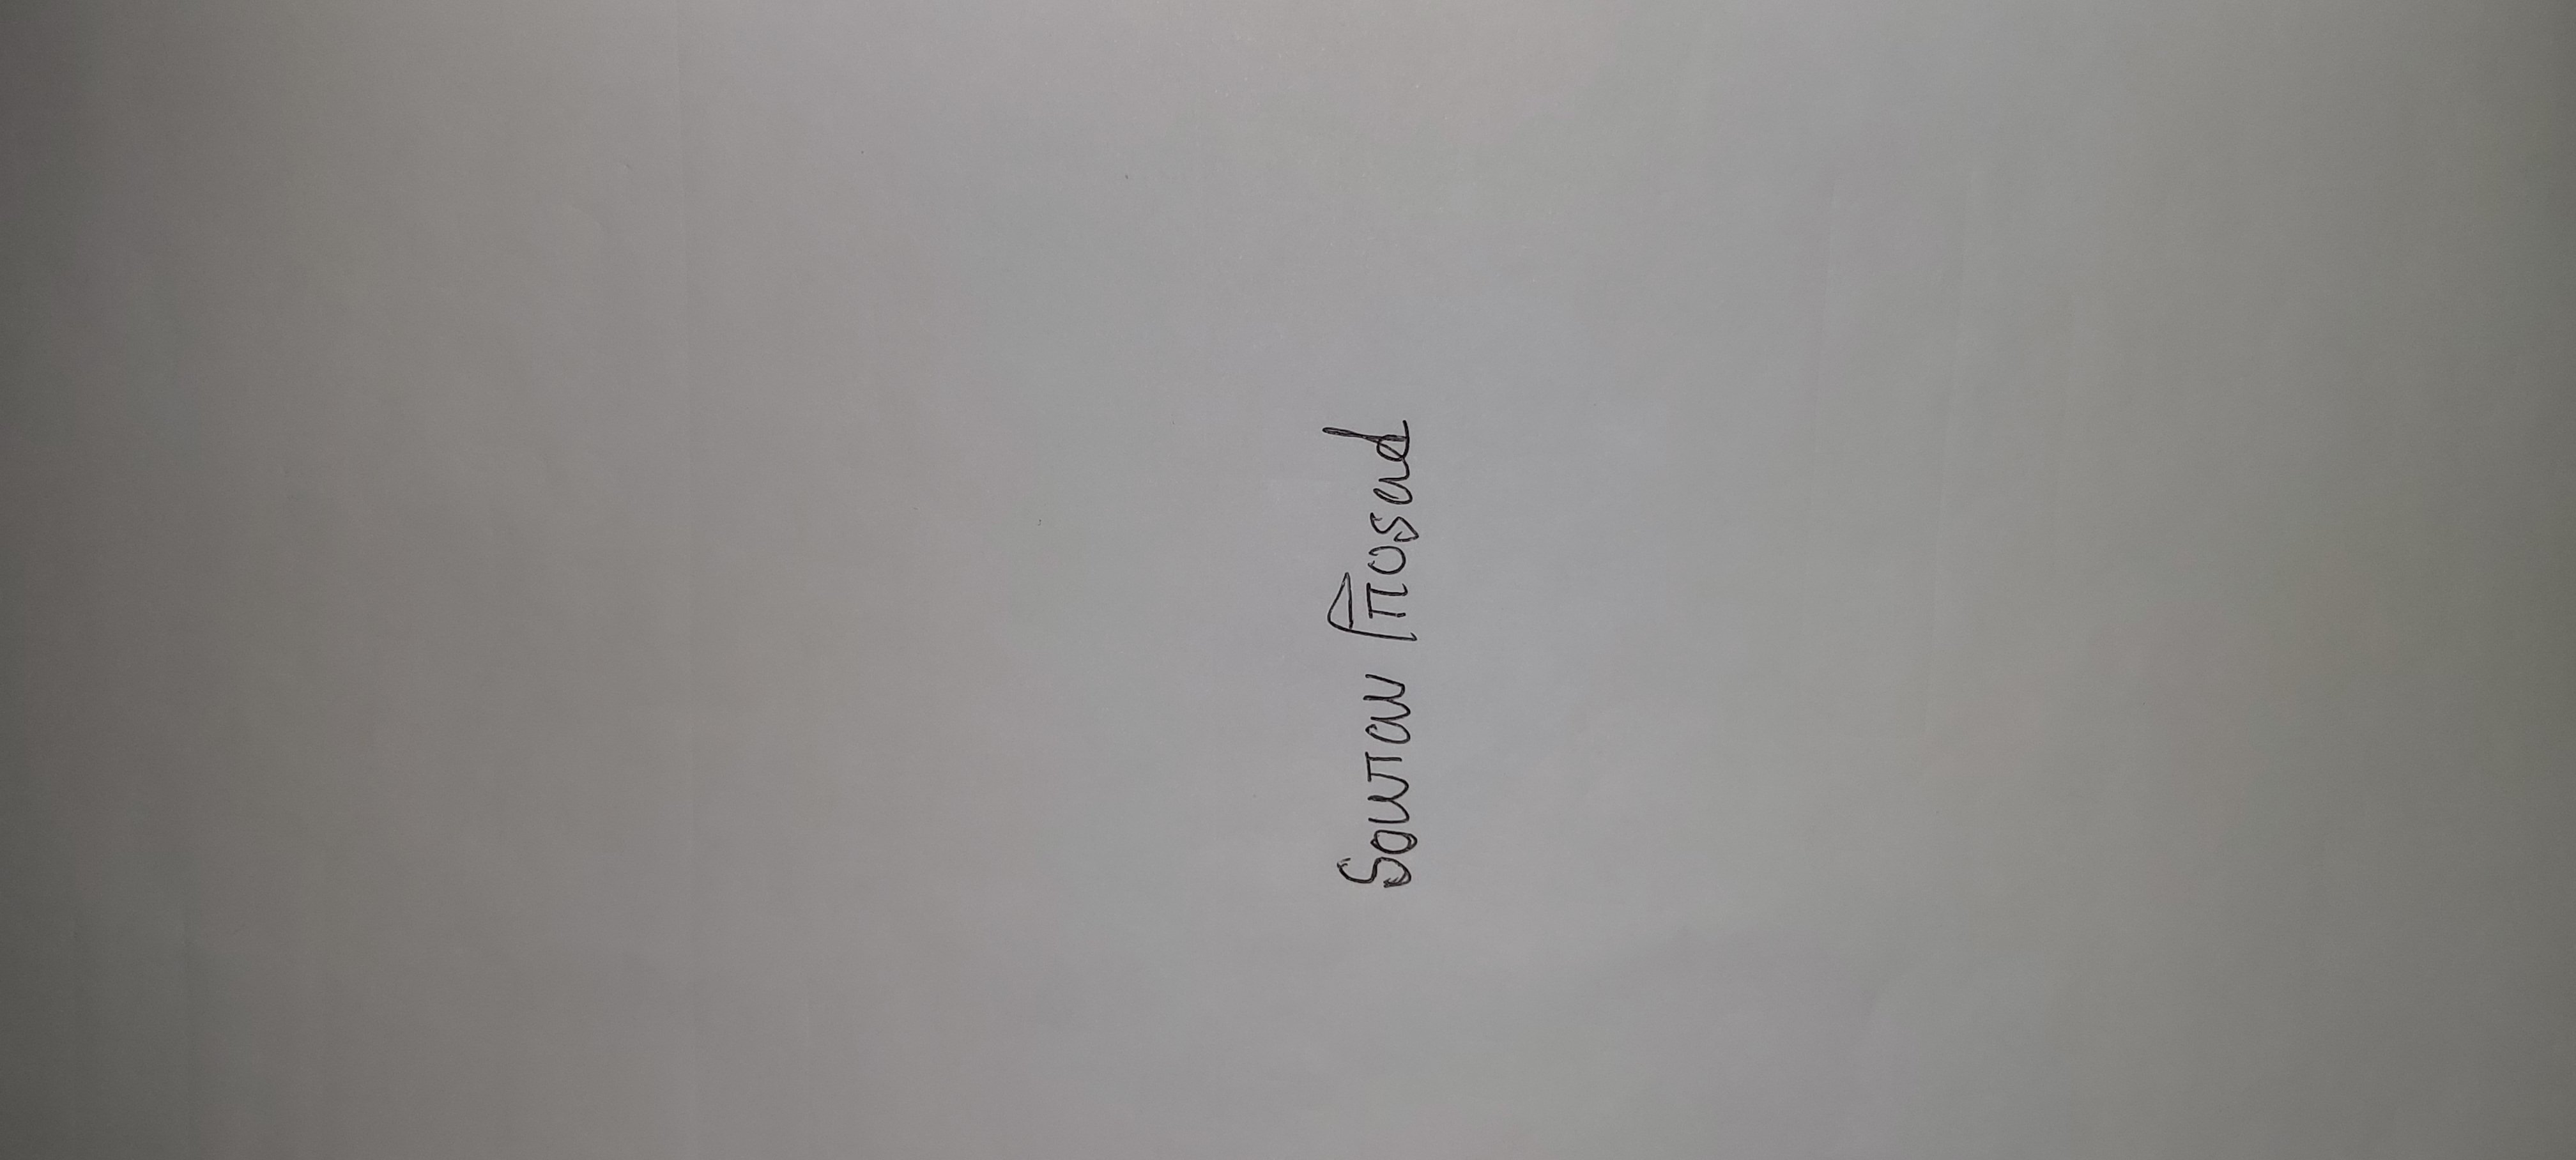 Sourav Prosad